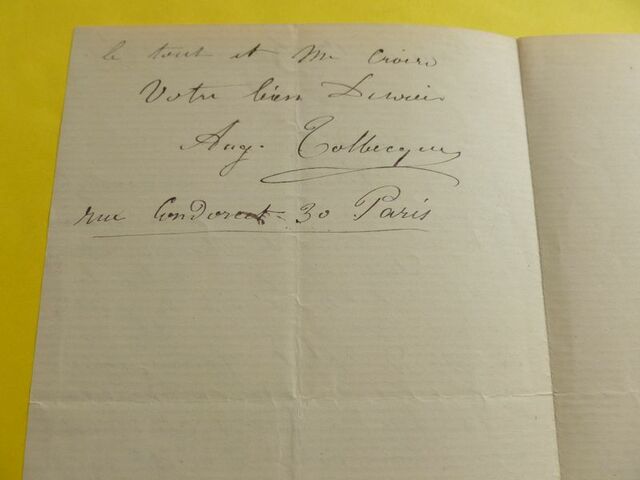 le tout et me croire
Votre bien Dévoué
Aug. Tolbecque
rue Condorcet 30 Paris